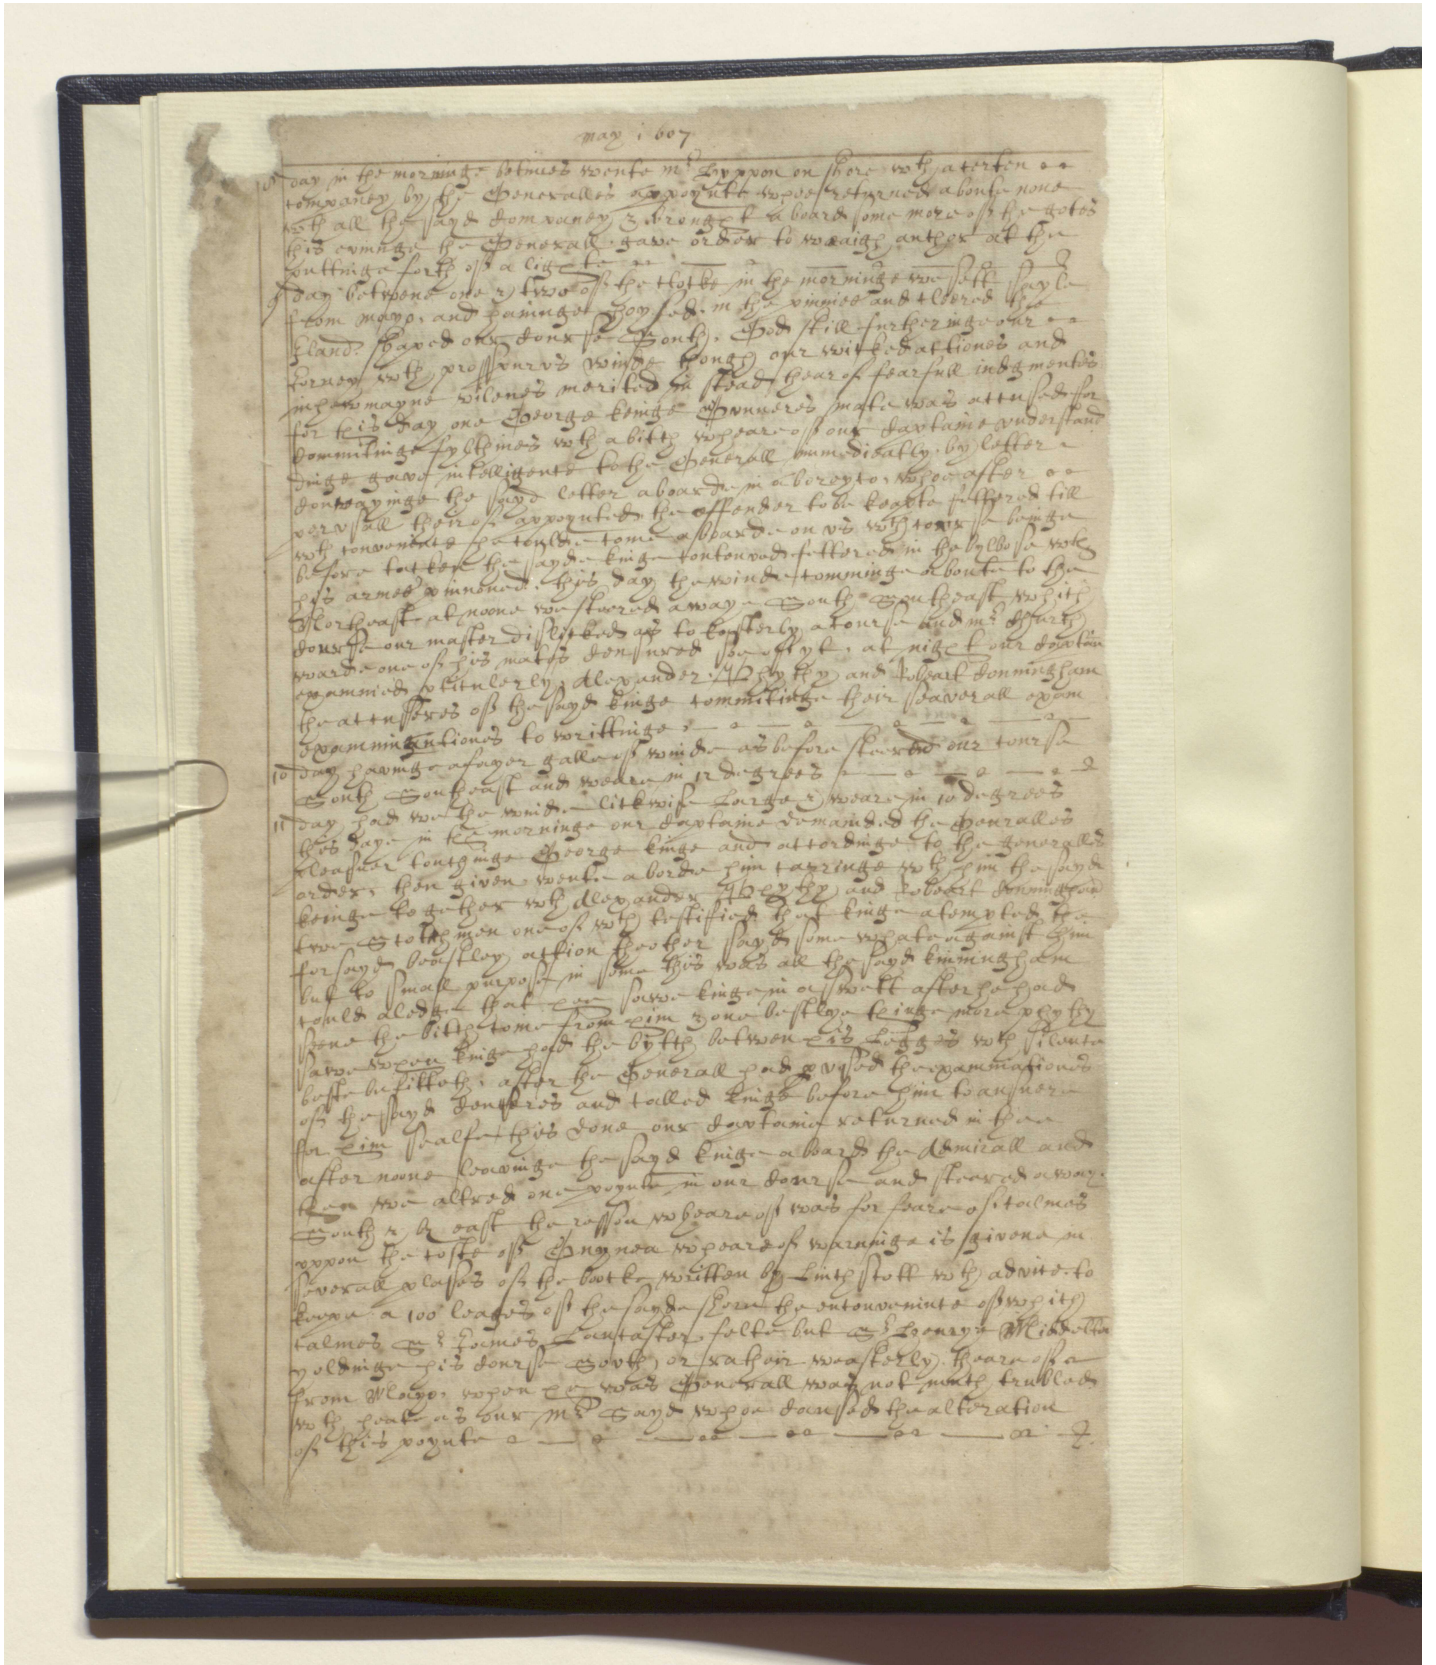 may i607
8 day in the morninge betimes wente mr Hyppon on shore wth a certen
companey by the Generalles appoynte whoe returned aboute none
wth all the sayd companey & brought aboard some more of the gotes
this evninge the Generall gave order to waigh anchor at the
puttinge forth of a lighte
9 day betwene one & two of the clocke in the morninge we sett sayle
from mayo. and havinge hoysed in the pinnice and cleered the
Iland shaped our course South. God still furtheringe our
Iorney wth prossperus winde though our wicked actiones and
inhewmayne vilenes merited in stead thear of fearfull iudgmentes
for this day one George kinge Gunneres mate was accused for
committinge fylthines wth a bitch wheare of our captaine vnderstand
dinge gave intelligence to the Generall immedieatly by letter
convayinge the sayd letter aboarde in a boreyco, whoe after
perusall theirof appoynted the offender to be keapte fettered till
wth convenience he coulde come aboarde on vs wth course beinge
before tacken the sayde kinge contenved fettered in the bylbose wth
his armes pinnoned. this day the winde comminge aboute to the
Northeast at noone we steered awaye South Southeast which
course our master disliked as to Easterly a course and mr
warde one of his mates censured soe of yt. at night our Captaine
examined perticulerly Alexander and Robeart Conningham
the accusseres of the sayd kinge committinge their seaverall exam
Examminationes to writtinge
10 day havinge a fayer galle of winde as before steered our course
South Southeast and weare in 12 degrees
11 day had we the winde lickwise Large & weare in 10 degrees
this daye in the morninge our Captaine demanded the Generalles
pleasuer touchinge George kinge and accordinge to the generalles
order then given wente aborde him carringe wth him the sayd
keinge together wth Alexander and Robeart Conningham
two Scotchmen one of wch testified that kinge atempted the
forsayd beastley action the other sayd some whate against him
but to small purpose in some this was all the sayd kinningham
could aledge that hee sawe kinge in a swett after he had
seene the bitch come from him & one bestlye thinge more
sawe when kinge had the bytch betwen his Legges wth silence
beste befitteth. after the Generall had pvsed the examinationes
of the sayd and called kinge before him to answere
for him sealfe this done our Captaine returned in thee
after noone leavinge the sayd kinge aboard the Admirall and
then we altred one poynte in our course and steared away
South & B east the resson wheare of was for feare of calmes
vppon the coste of Gnynea wheare of warninge is givene in
severall plases of the boocke written by Linchscott wth advice to
keepe a 100 leages of the sayde shore the enconvenince of which
calmes Sr Iames Lancaster felte but Sr Henrye Middelton
holdinge his course South or ratheir weasterly theare of
from Mayo when he was Generall was not much trubled
wth heate as our mr Sayd whoe caused the alteration
of this poynte